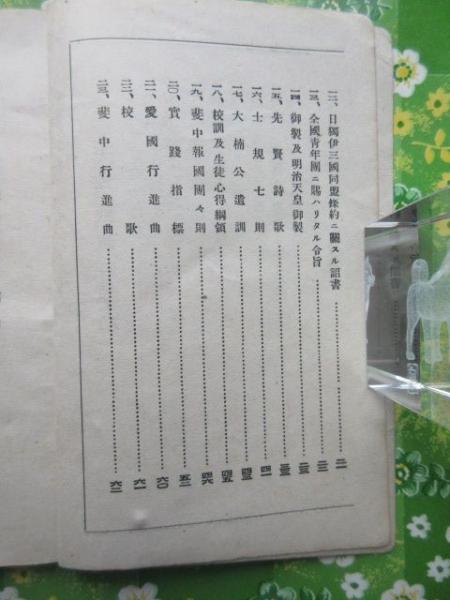 一二、日獨伊三國同盟條約ニ關スル詔書 二一
一三、全國青年團ニ賜ハリタル令旨 二二
一四、御製及明治天皇御製 二三
一五、先賢詩歌 三三
一六、士規七則 四一
一七、大楠公遺訓 四三
一八、校訓及生徒心得綱領 四五
一九、斐中報國團々則 四六
二〇、實踐指標 六〇
二一、愛國行進曲
二二、校歌 六一
二三、斐中行進曲 六二